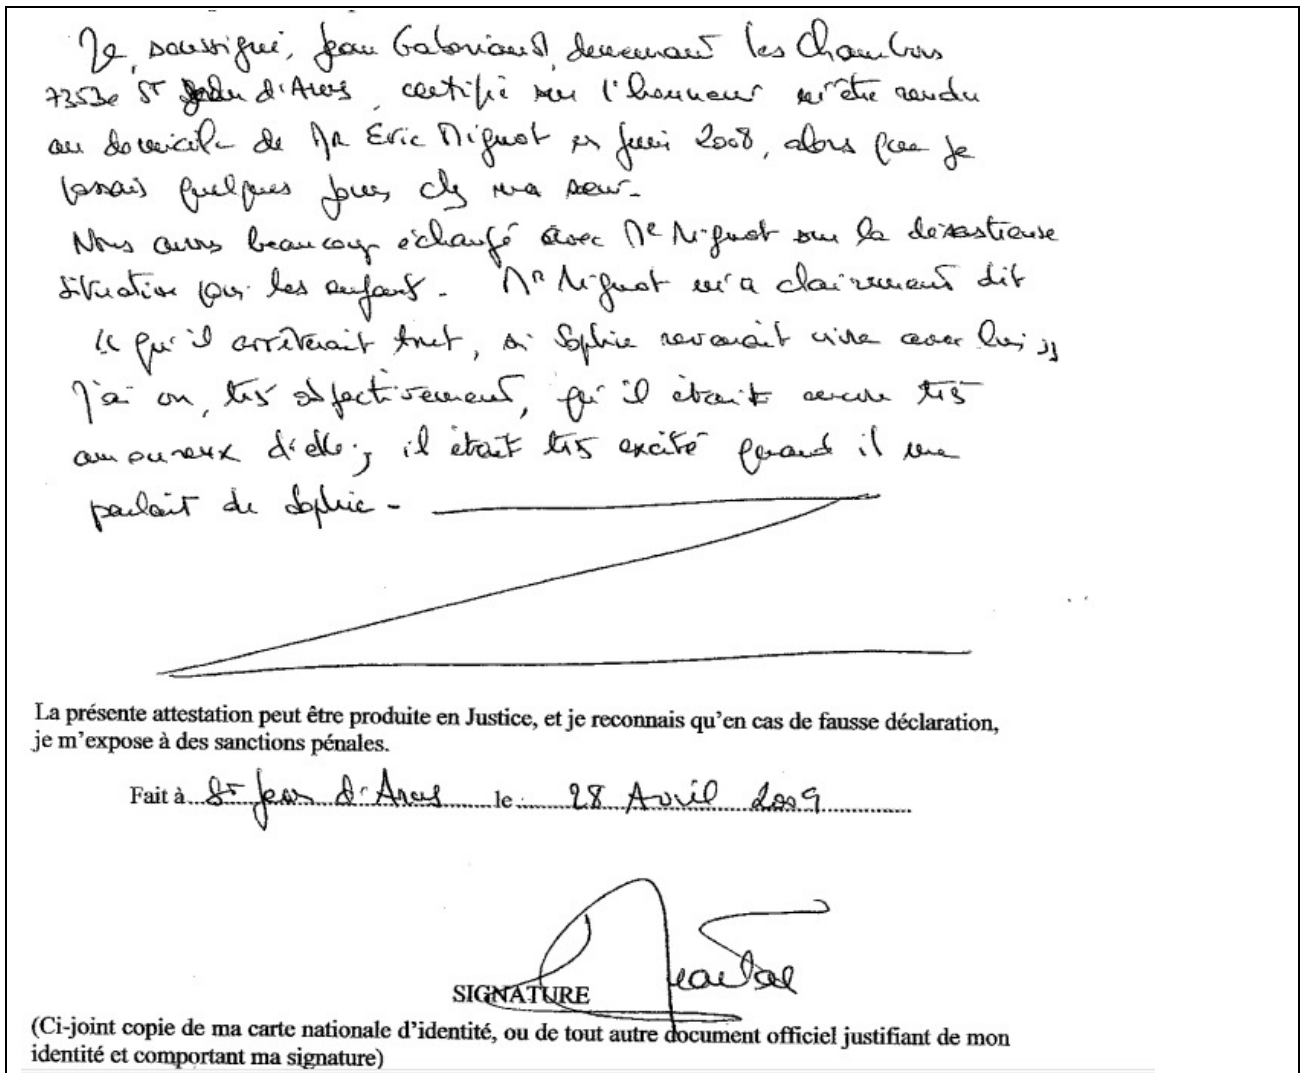 Je, soussigné, Jean Gaboriaud, demeurant les Chambons
73530 St Jean d'Arves, certifie sur l'honneur m'être rendu
au domicile de Mr Eric Mignot en Juin 2008, alors que je
passais quelques jours chez ma soeur.
Nous avons beaucoup échangé avec Mr Mignot sur la désastreuse
situation pour les enfants. Mr Mignot m'a clairement dit
"qu'il arrêterait tout, si Sophie revenait vivre avec lui"
J'ai cru, très objectivement, qu'il était encore très
amoureux d'elle; il était très excité quand il me
parlait de Sophie -
La présente attestation peut être produite en Justice, et je reconnais qu'en cas de fausse déclaration,
je m'expose à des sanctions pénales.
Fait à St Jean d'Arves le : 28 Avril 2009
SIGNATURE
(Ci-joint copie de ma carte nationale d'identité, ou de tout autre document officiel justifiant de mon
identité et comportant ma signature)